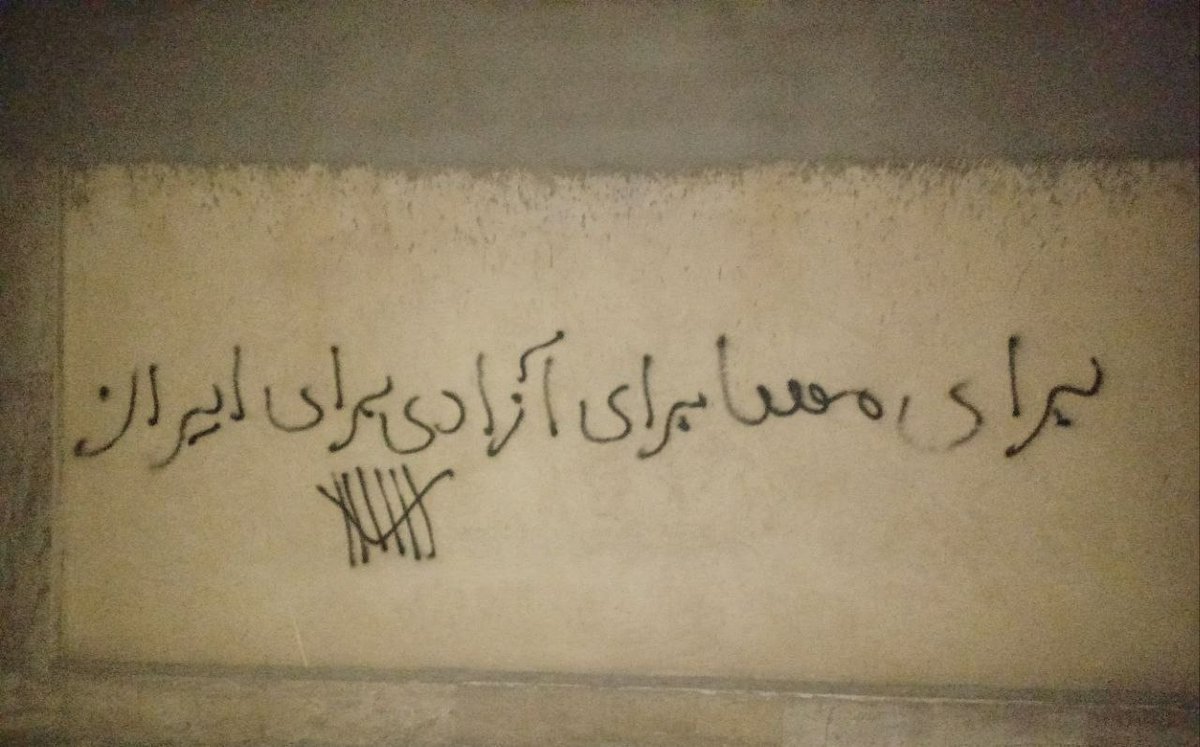 برای مهسا برای آزادی برای ایران